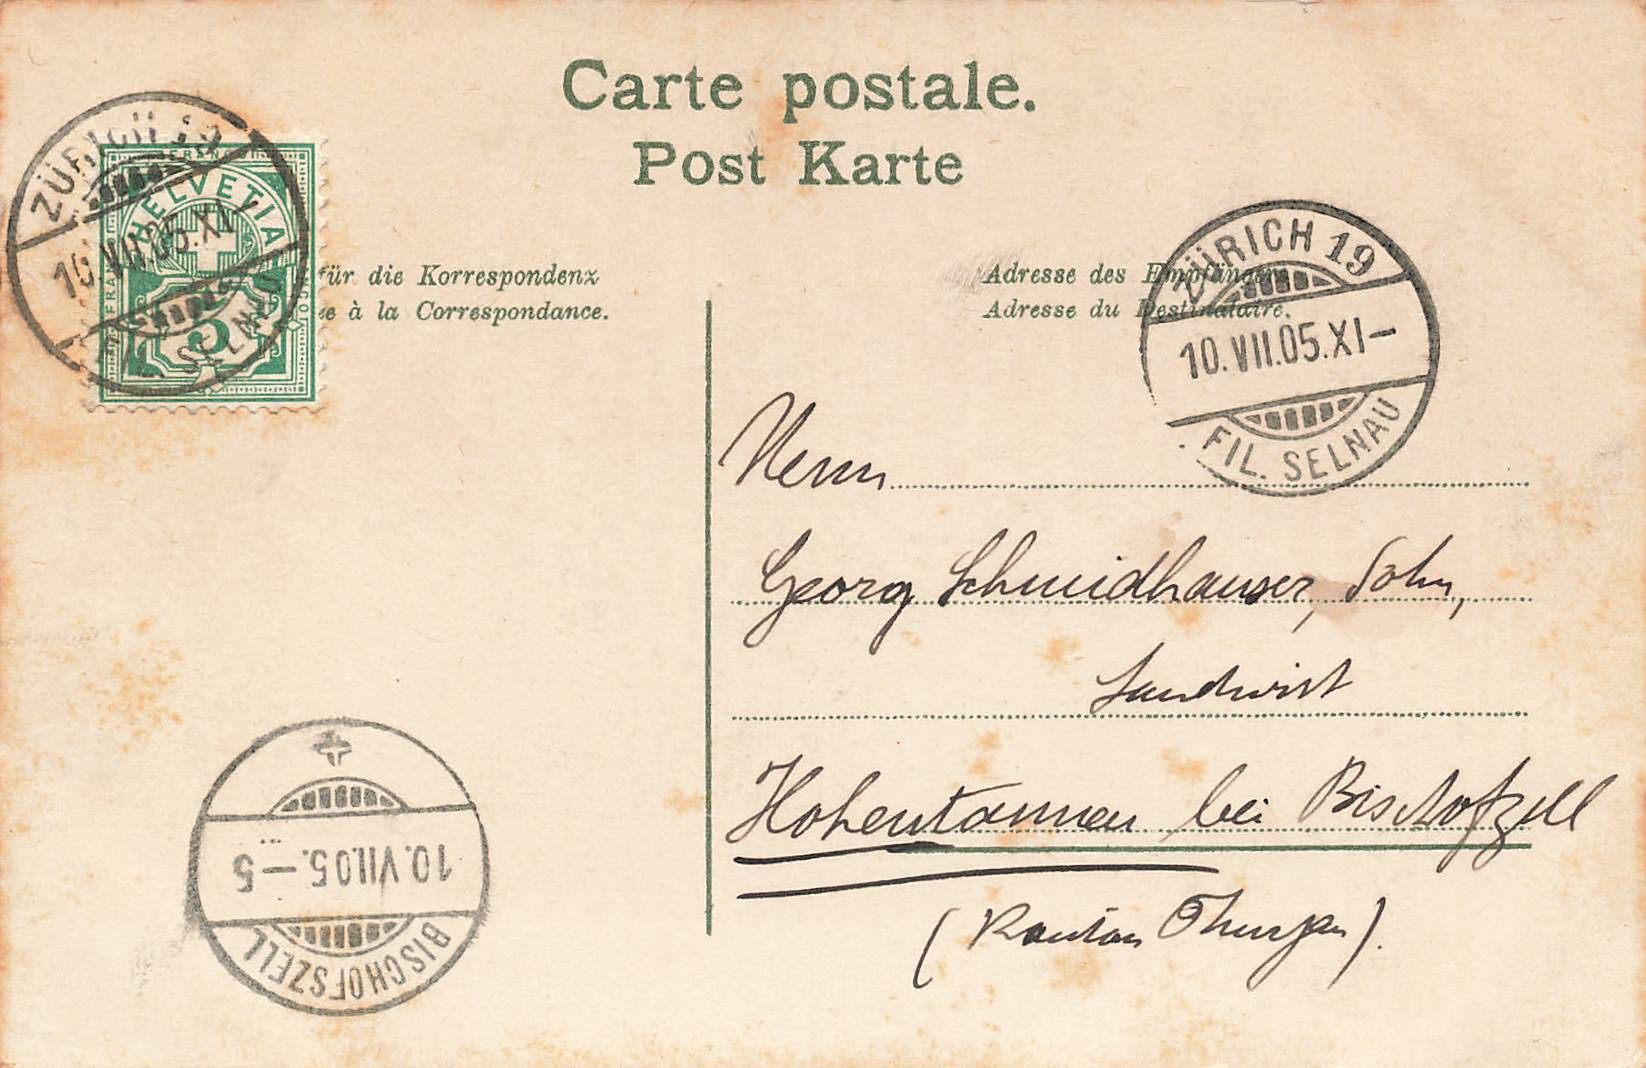 Carte postale.
Post Karte
für die Korrespondenz
à la Correspondance.
Adresse des Empfängers
Adresse du Destinataire.
ZÜRICH 19
10.VII.05.XI
FIL. SELNAU
HELVETIA
5
ZÜRICH 19
10.VII.05.XI–
FIL. SELNAU
Herrn
Georg Schmidhauser, Sohn,
Landwirt
Hohentannen bei Bischofzell
(Kanton Thurgau).
10.VII.05.–5
BISCHOFSZELL